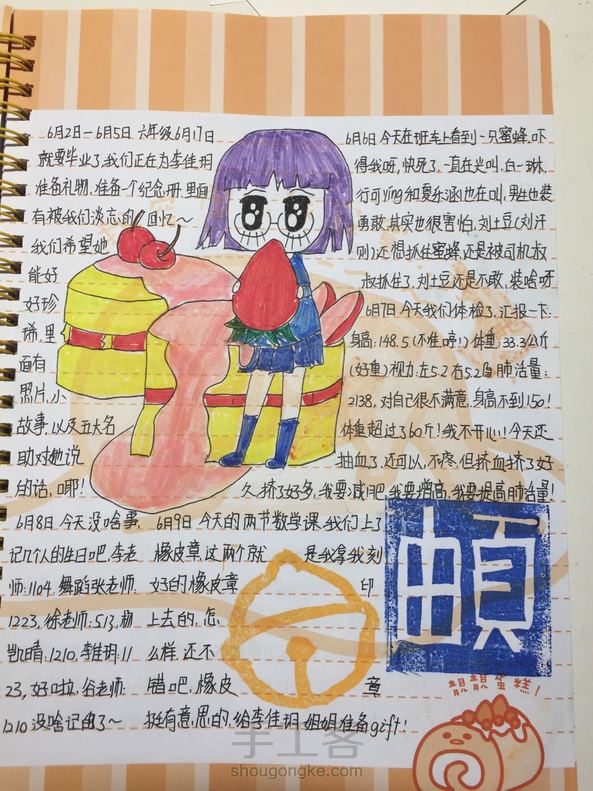 6月2日—6月5日 六年级6月17日
就要毕业了,我们正在为李佳玥
准备礼物,准备个纪念册,里面
有被我们淡忘的回忆~
我们希望她
能好
好珍
稀,里
面有
照片,小
故事,以及五大名
助对她说
的话,耶!
6月6日 今天在班车上看到一只蜜蜂,吓
得我呀,快死了,一直在尖叫,白一琳,
行可ying和夏乐涵也在叫,男生也装
勇敢,其实也很害怕,刘土豆(刘汗
则)还想抓住蜜蜂,还是被司机叔
叔抓住了,刘土豆还是不敢,装啥呀
6月7日 今天我们体检了,汇报一下:
身高:148.5(不准,哼!)体重:33.3公斤
(好重)视力,左5.2右5.2 肺活量:
2138,对自己很不满意,身高不到150!
体重超过了60斤!我不开心!今天还
抽血了,还可以,不疼,但挤血挤了好
久,挤了好多,我要减肥,我要增高,我要提高肺活量!
6月8日 今天没啥事,
记几个人的生日吧,李老
师:1104,舞蹈张老师:
1223,徐老师:513,杨
凯晴:1210,李佳玥:11
23,好啦,谷老师:
1210 没啥记的了~
6月9日 今天的两节数学课,我们上了
橡皮章,这两个就是我拿我刻
好的橡皮章印
上去的,怎
么样,还不
错吧,橡皮章
挺有意思的,给李佳玥姐姐准备gift!
蛋糕!
手工客
shougongke.com